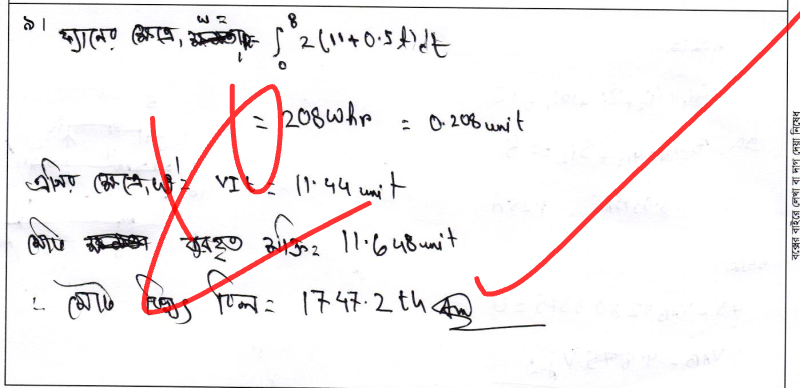 ৯। ফ্যানের ক্ষেত্রে, w = ∫₀⁸ 2(11+0.5t)dt
= 208Whr = 0.208 unit
এসির ক্ষেত্রে, w' = VIt = 11.44 unit
মোট ব্যবহৃত শক্তি = 11.648 unit
∴ মোট বিদ্যুৎ বিল = 1747.2 tk Am
বক্সের বাইরে লেখা বা দাগ দেয়া নিষেধ